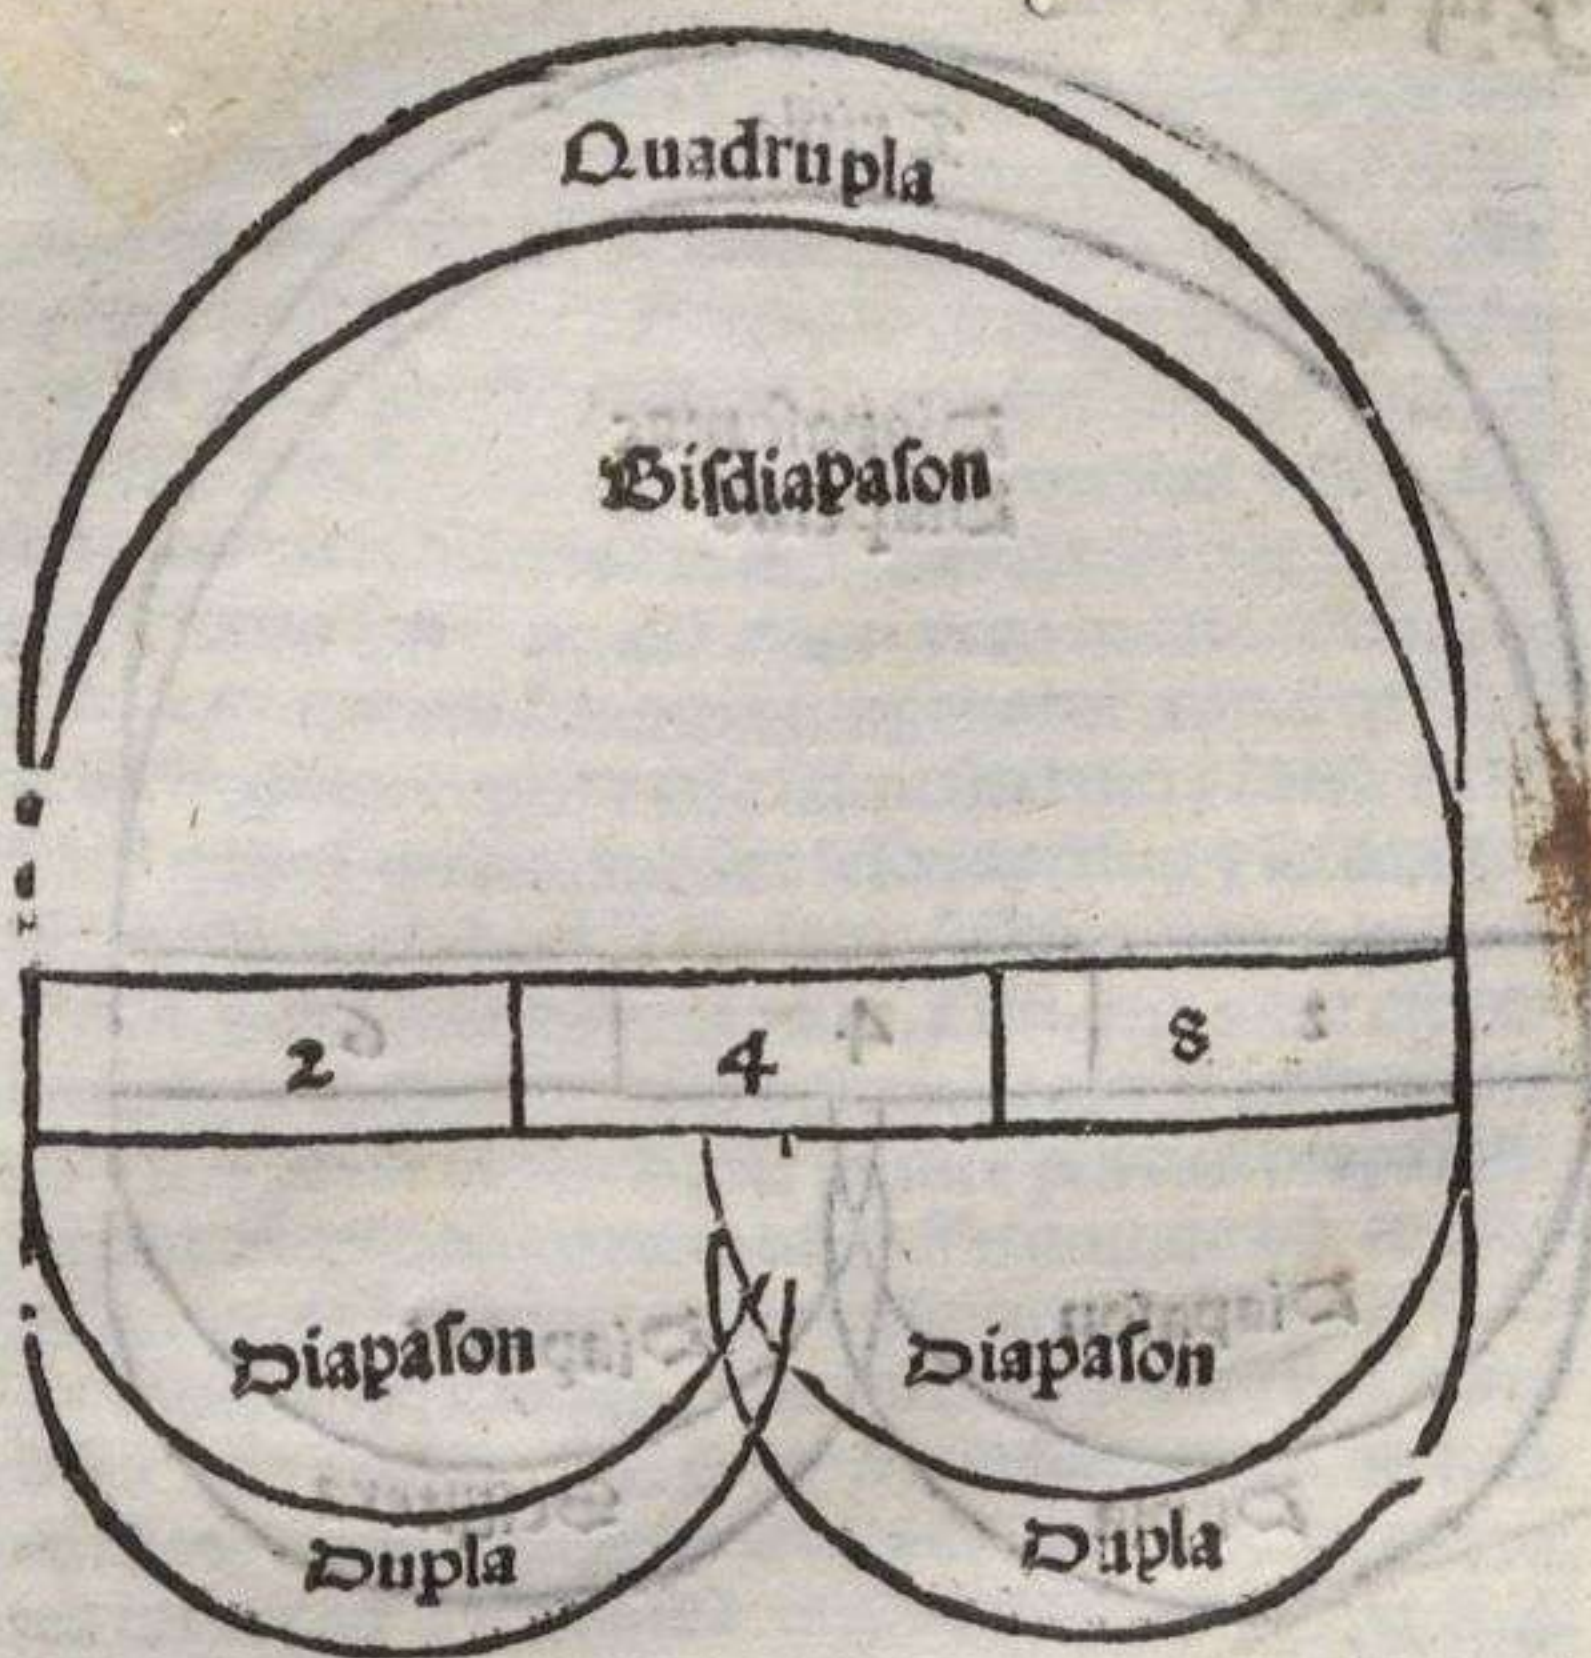 Quadrupla
Bisdiapason
2 4 8
Diapason Diapason
Dupla Dupla